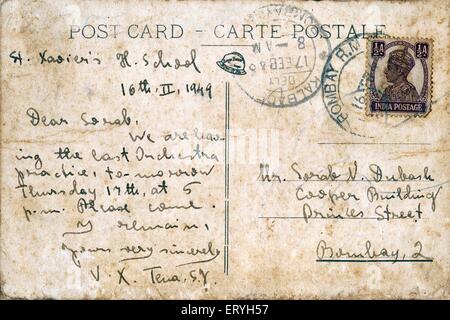 POST CARD - CARTE POSTALE
St. Xavier's H. School
16th, II, 1949
Dear Sorab,
We are hav
ing the last Orchestra
practice, to-morrow
Thursday 17th, at 5
p.m. Please come.
I remain,
yours very sincerely
V. X. Tena, S.J.
8 - AM
17 FEB
DELY
KALBADE
BOMBAY R.M
16
½A ½A
INDIA POSTAGE
Mr. Sorab N. Dubash
Cooper Building
Princes Street
Bombay, 2
alamy
alamy
Image ID: ERYH57
www.alamy.com